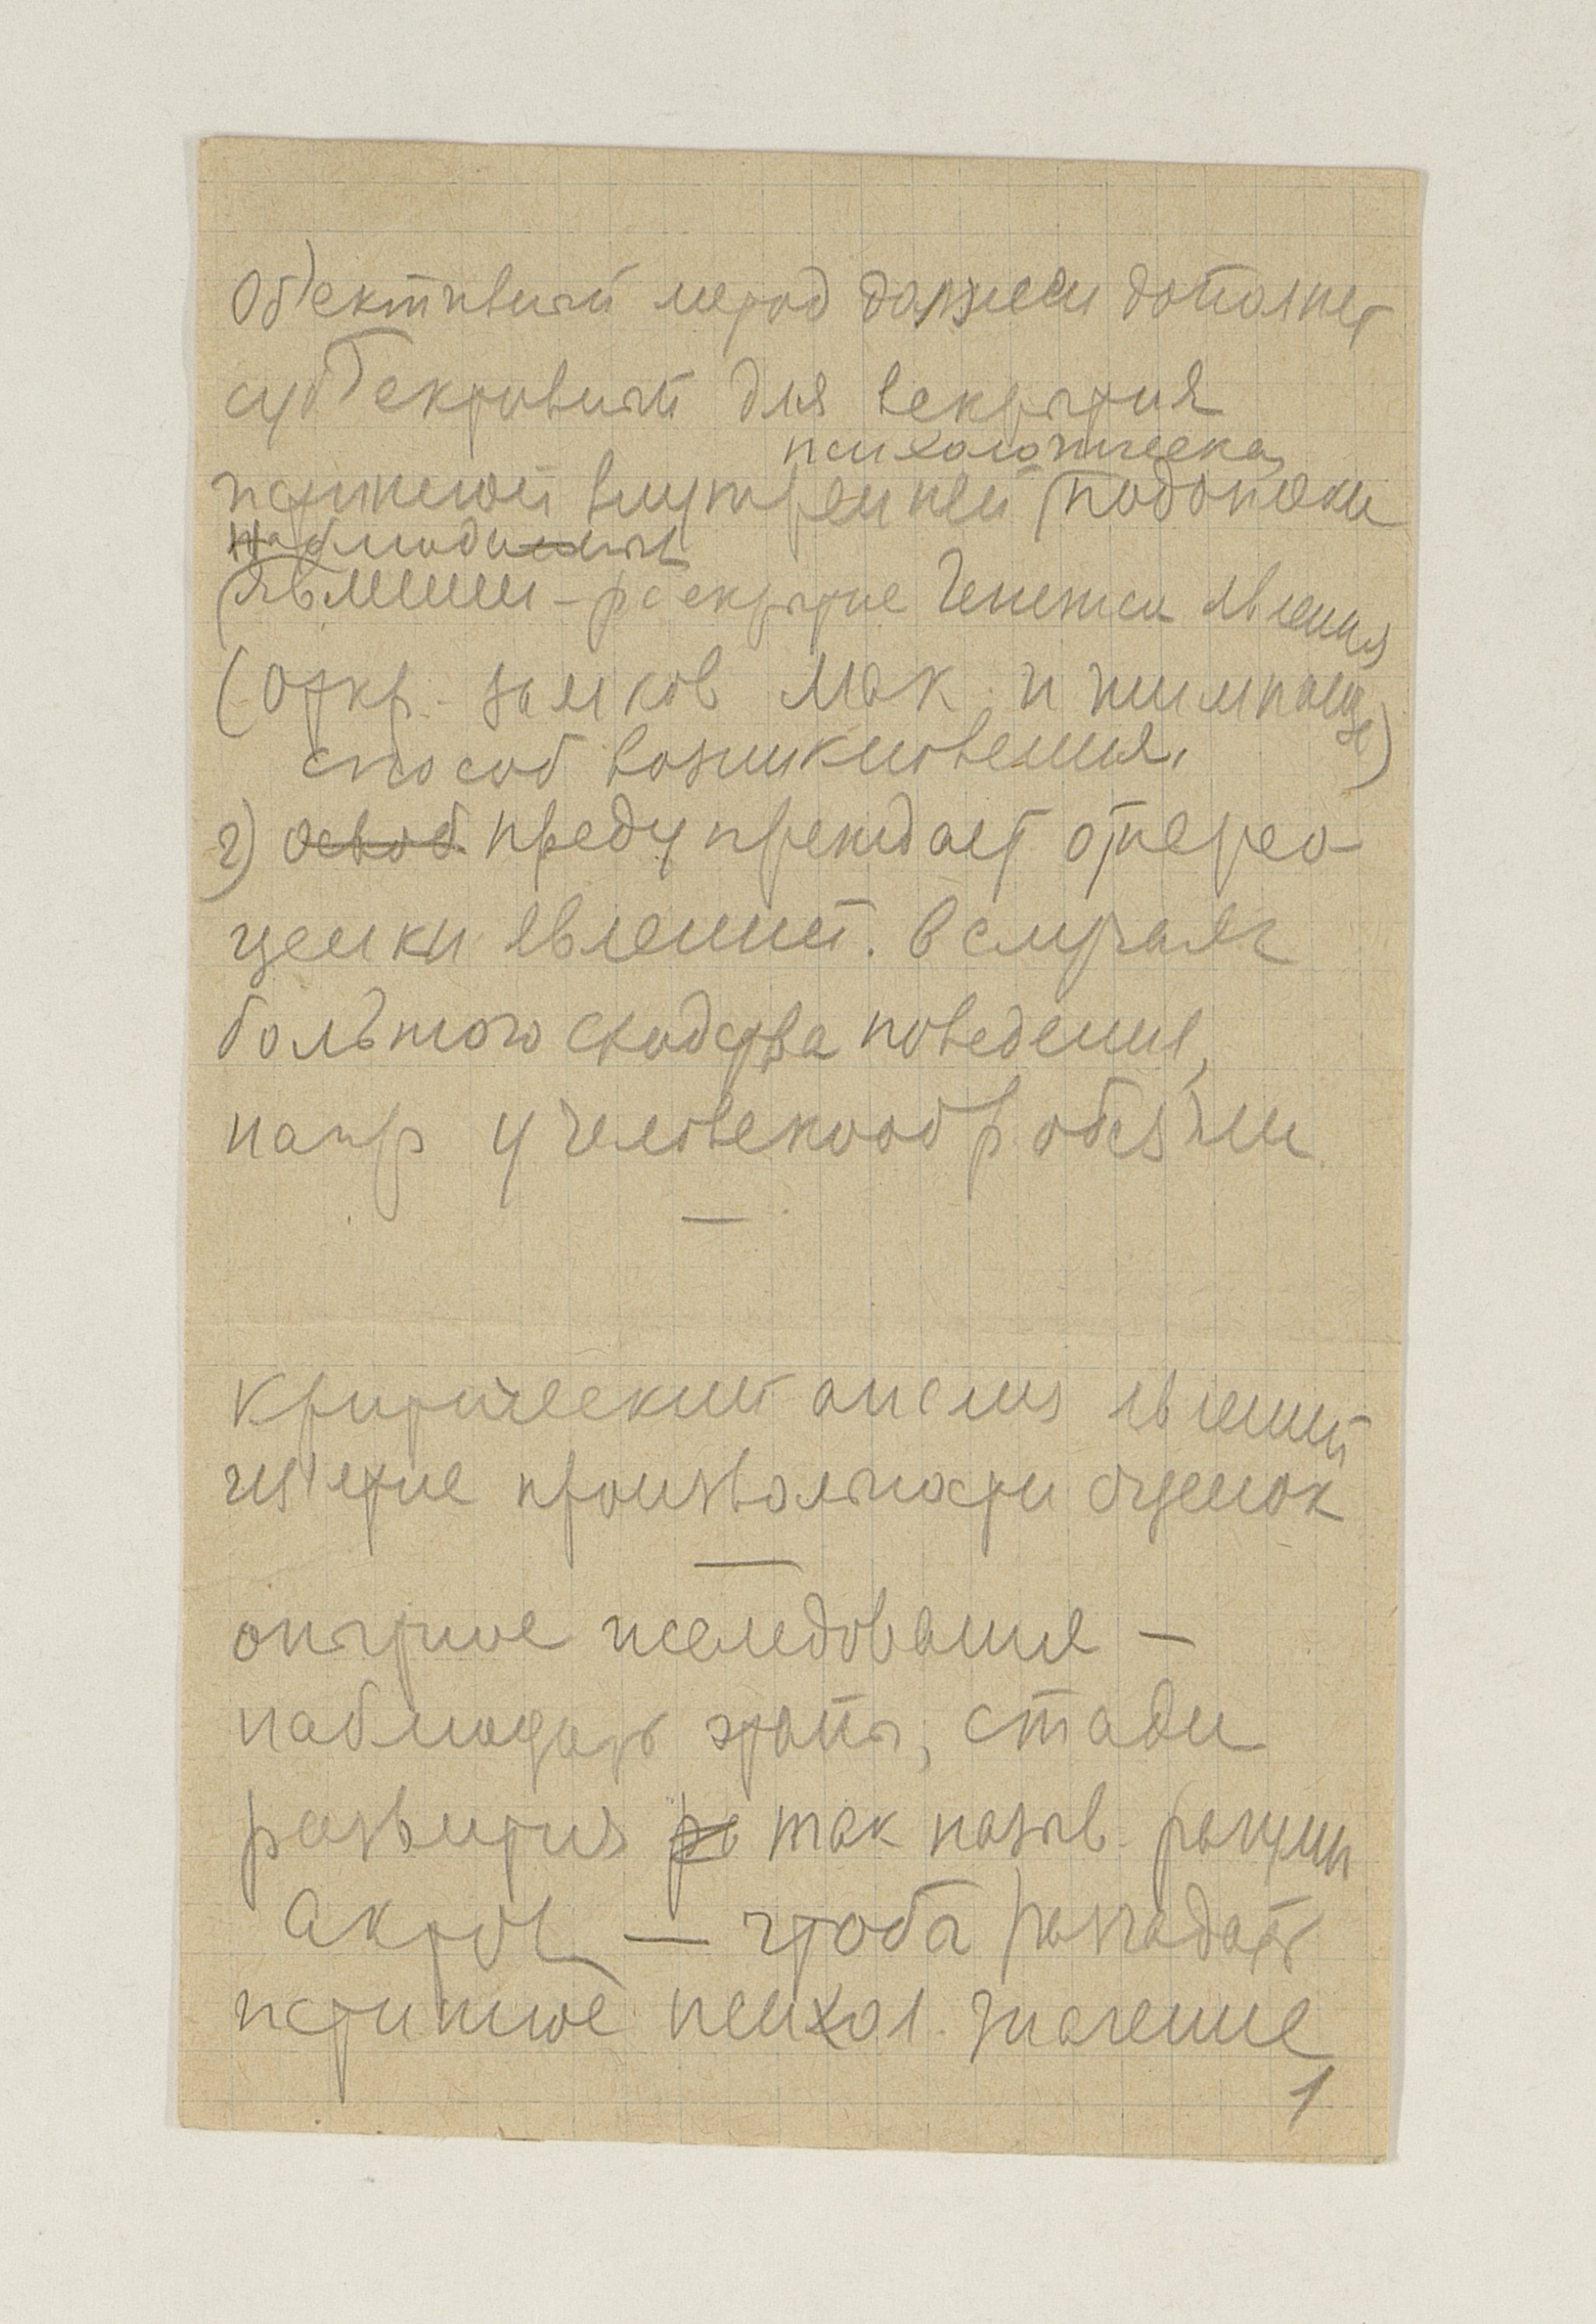 Об'ективный метод должен дополнят
суб'ективный для вскрытия
психологическа
истинной внутренней (подоплеки
наблюдаемых
(явлении – раскрытие генезиса явления
(откр. замков мак. и шимпанзе)
способ возникновения.
2) освоб. предупреждает от перео-
ценки явлений. в случаях
большого сходства поведения,
напр у человекообр обезьян
—
критический анализ явлений
из'ятие произвольности оценок
—
опытное исследование –
наблюдать этапы, стади
развития ра так назыв. разумн
актов — чтобы разгадать
истинное психол. значение
1